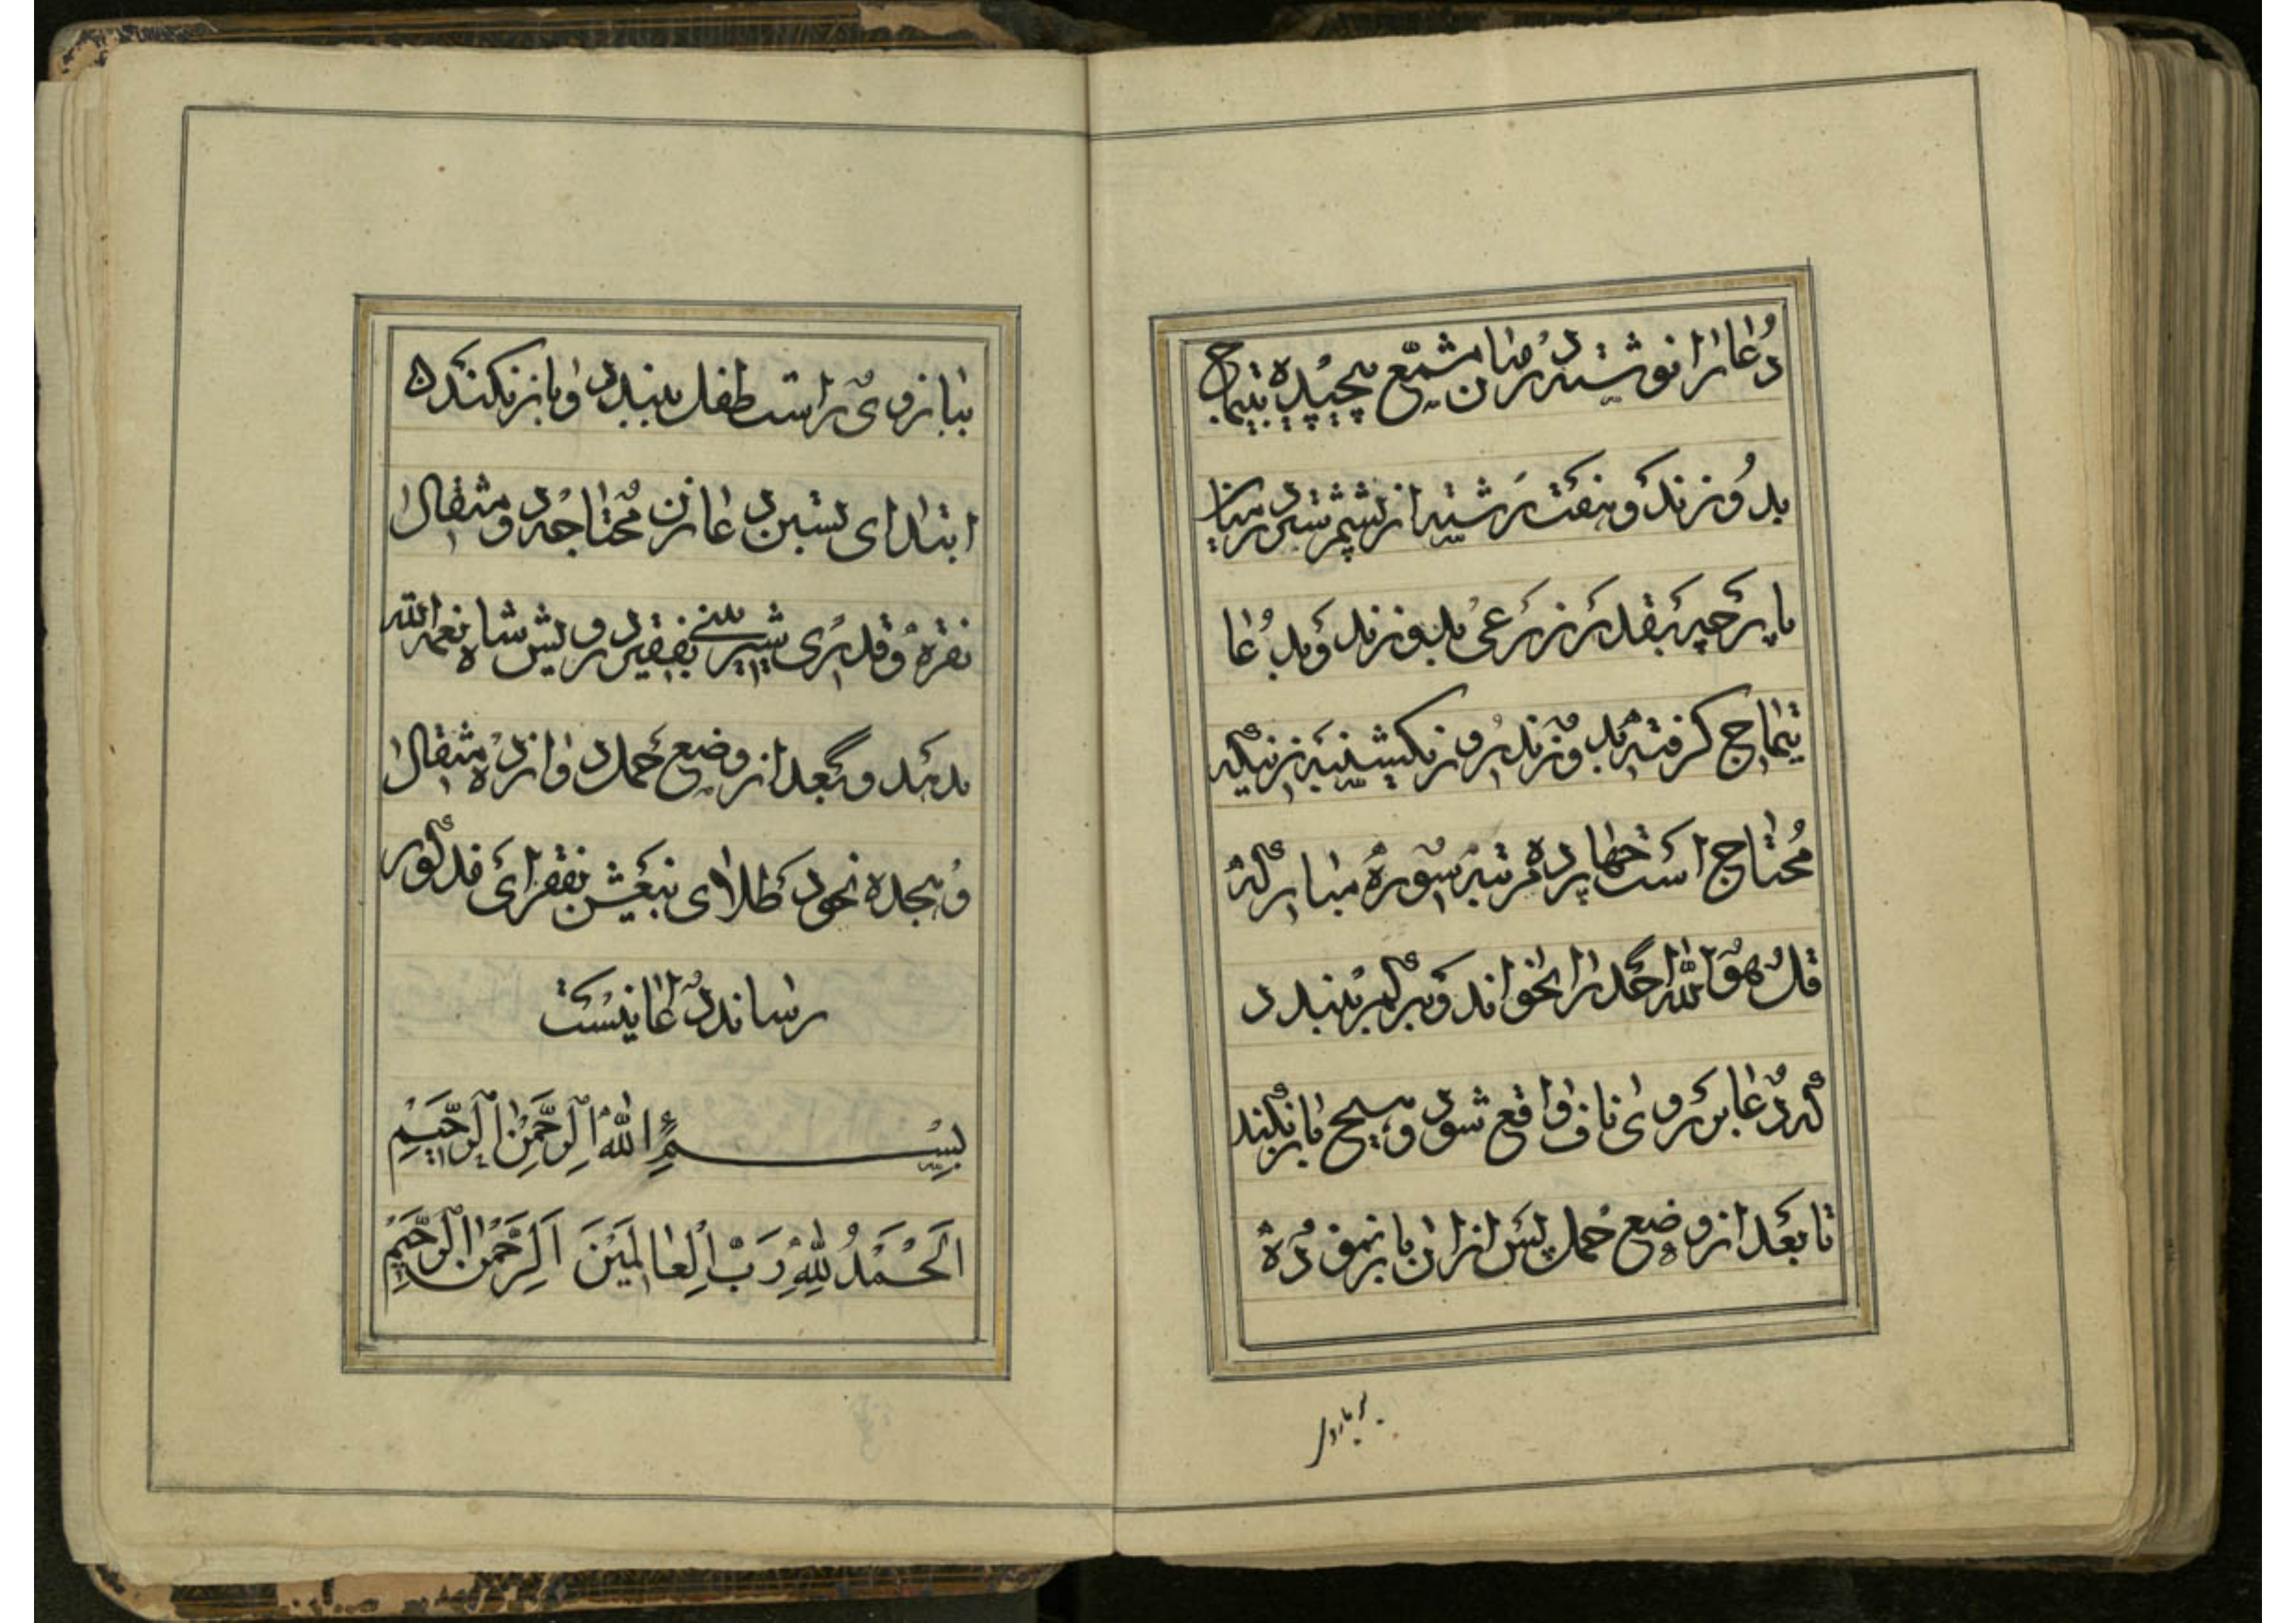 دعا را نوشته در میان مشمع پیچیده بتیماج
بدوزند و هفت رشته ابریشم ستبر در میان
پارچه بقدر نزرعی بدوزند و بدعا
تیماج گرفته بدوزند در روز یکشنبه زنیکه
محتاج است چهارده مرتبه سورهٔ مبارکه
قل هو الله احد را بخواند و بر کمر بندد
که دعا بر روی ناف واقع شود و هیچ باز نکند
تا بعد از وضع حمل پس از ان باز نموده
ببازوی
ببازوی راست طفل ببندد و باز نکند
ابتدای بستن دعا زن محتاجه دو مثقال
نقره و قدری شیرینی بفقیر درویش شاه نعمة الله
بدهد و بعد از وضع حمل دوازده مثقال
و هجده نخود طلای بیغش بفقرای مذکور
رساند دعا اینست
بسم الله الرحمن الرحیم
الحمد لله رب العالمین الرحمن الرحیم